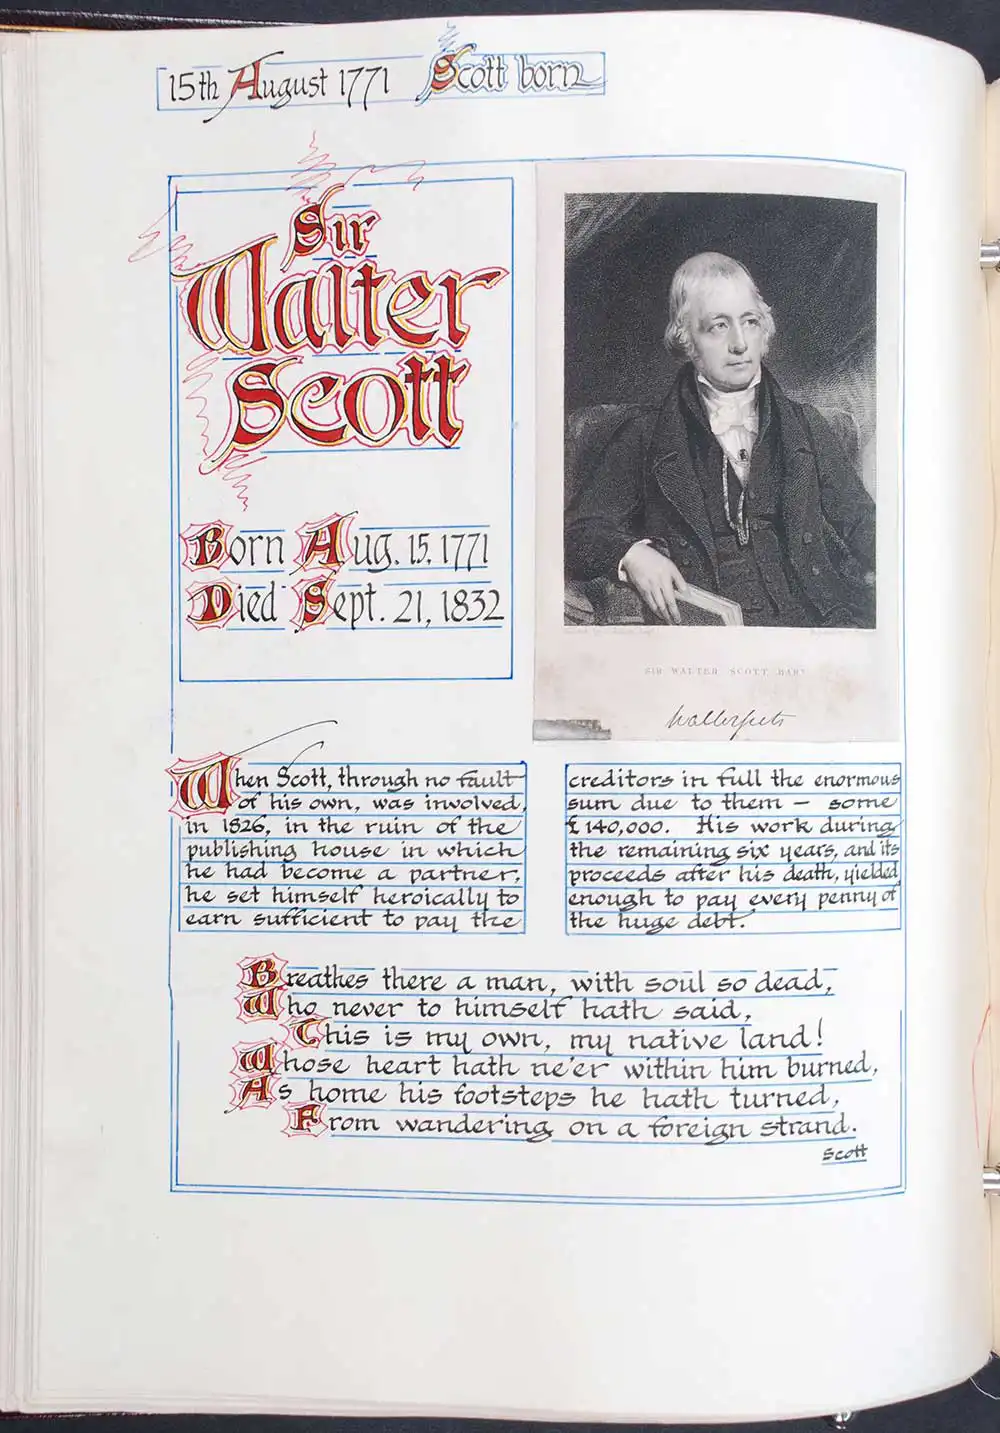 15th August 1771 Scott born
Sir
Walter
Scott
Born Aug. 15, 1771
Died Sept. 21, 1832
SIR WALTER SCOTT BART
Walter Scott
When Scott, through no fault
of his own, was involved,
in 1826, in the ruin of the
publishing house in which
he had become a partner,
he set himself heroically to
earn sufficient to pay the
creditors in full the enormous
sum due to them — some
£140,000. His work during
the remaining six years, and its
proceeds after his death, yielded
enough to pay every penny of
the huge debt.
Breathes there a man, with soul so dead,
Who never to himself hath said,
This is my own, my native land!
Whose heart hath ne'er within him burned,
As home his footsteps he hath turned,
From wandering on a foreign strand.
Scott